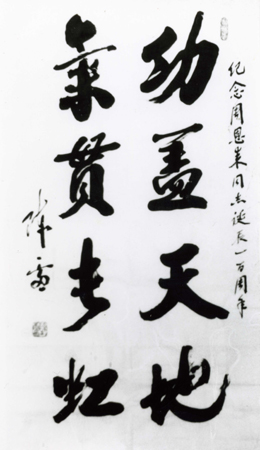 纪念周恩来同志诞辰一百周年
功盖天地
氣貫长虹
陈雷